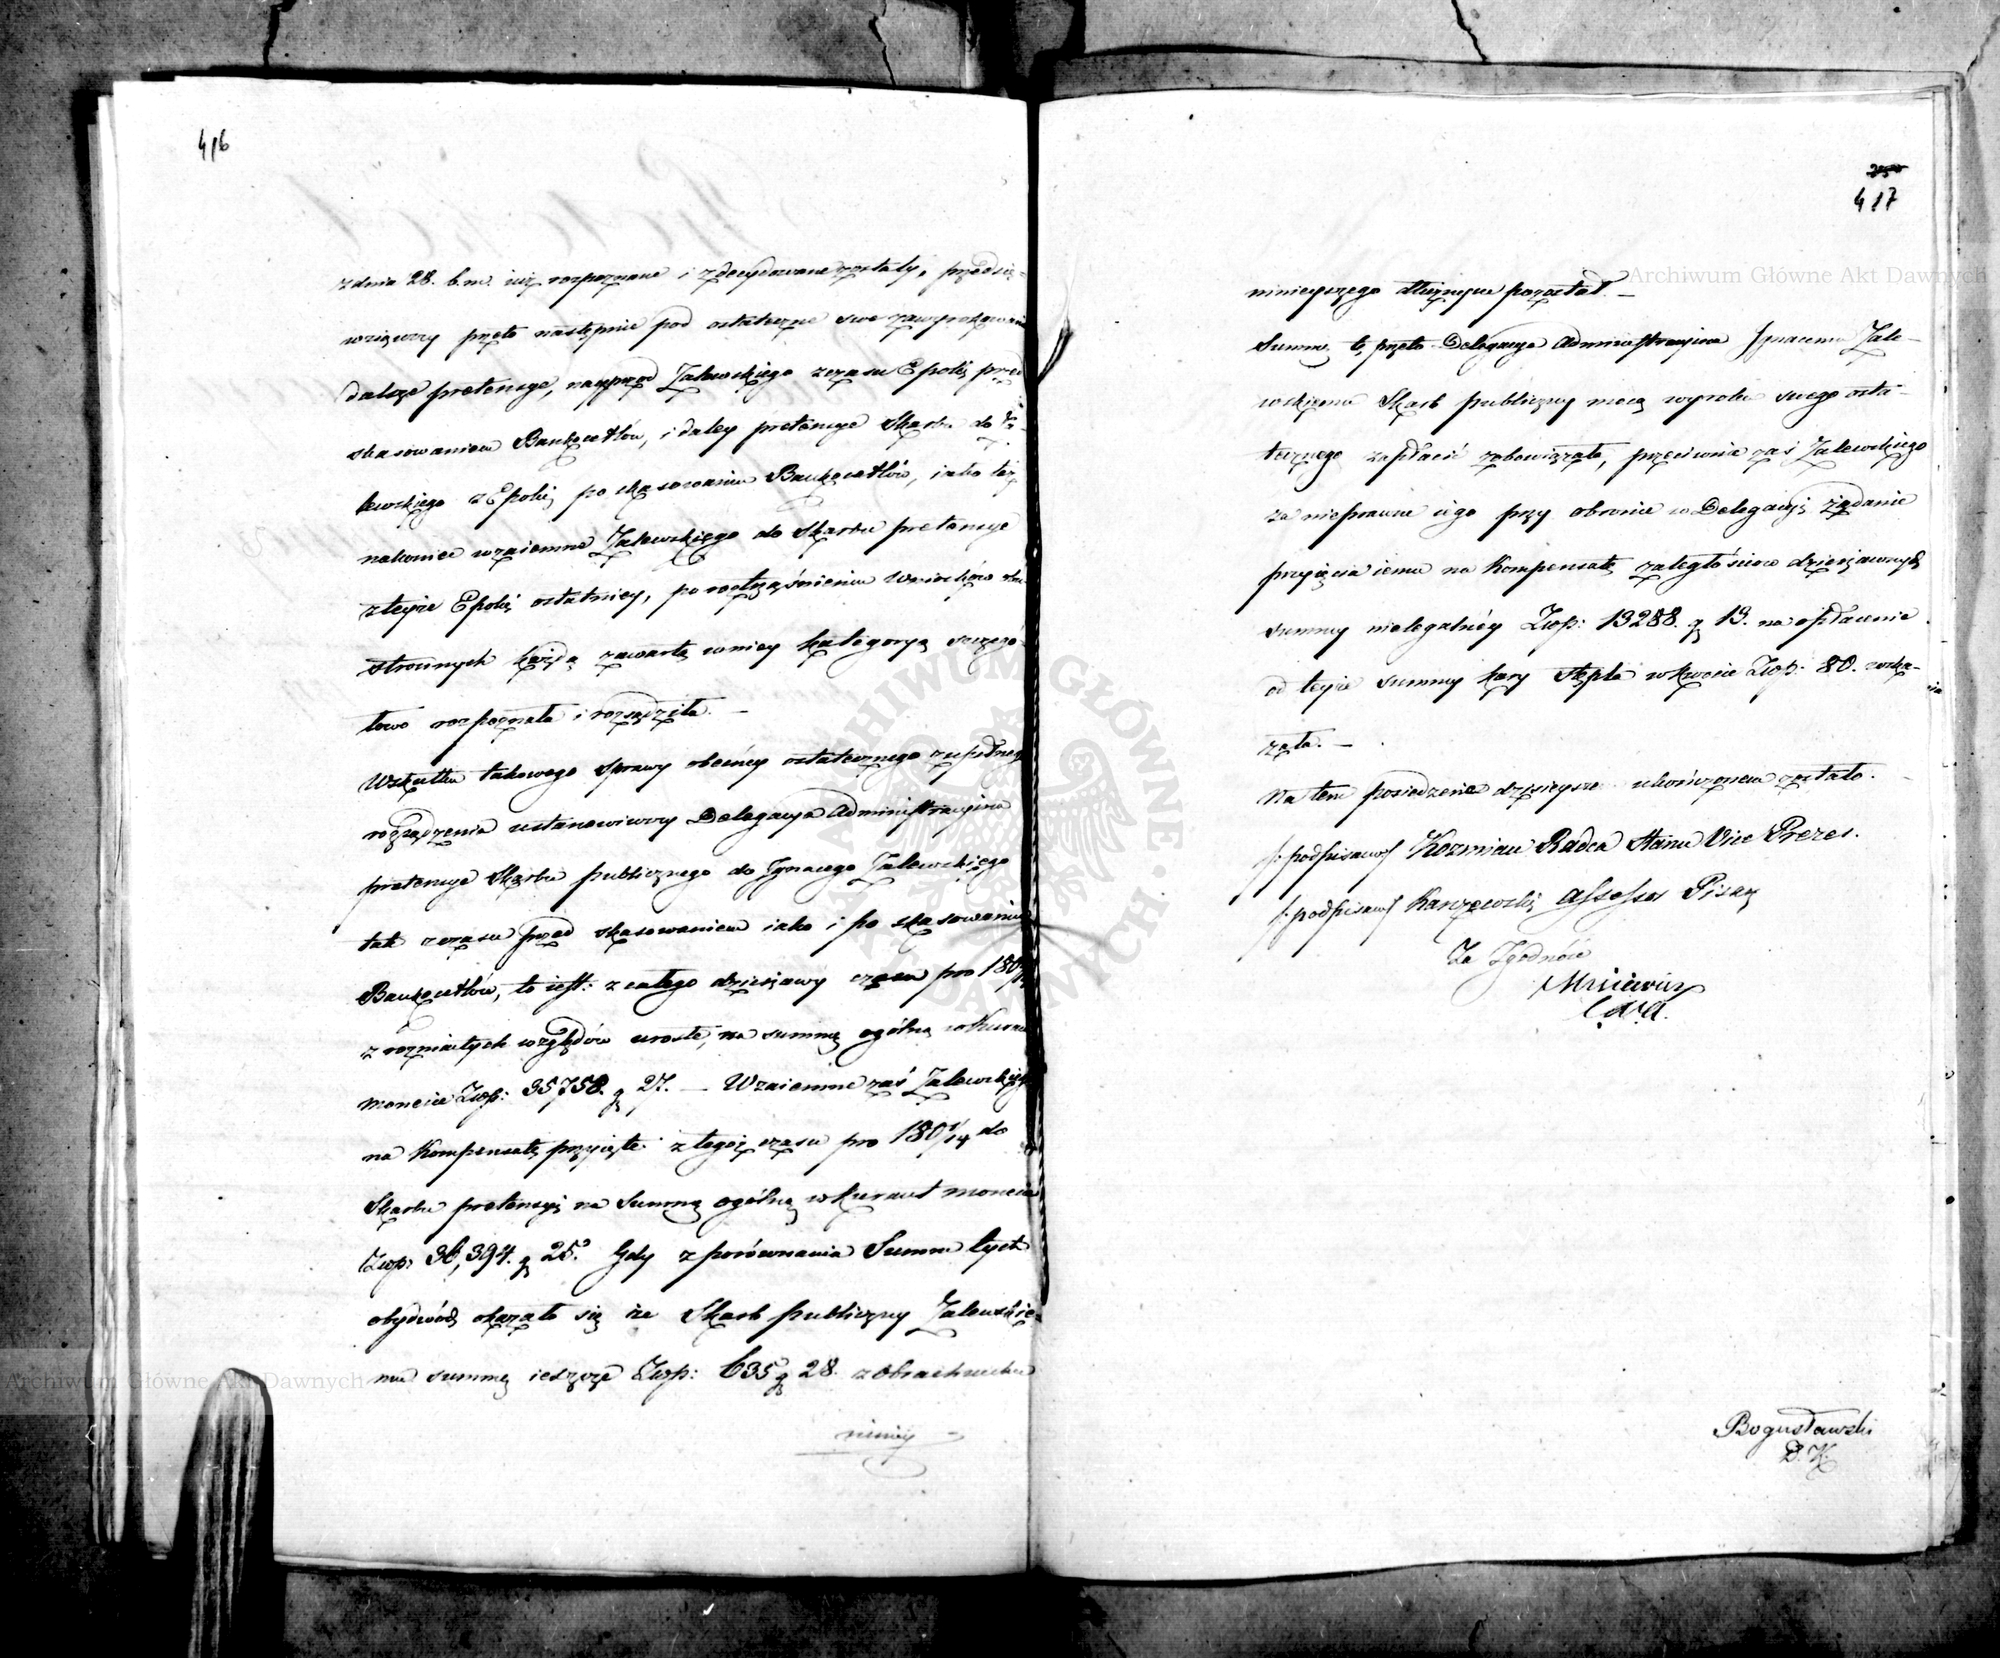 416
z dnia 28. b. m. iuż rozpoznane i zdecydowane zostały, przedsię-
wziąwszy przeto następnie pod ostateczne swe zawyrokowanie
dalsze pretensye, naprzod Zalewskiego z czasu Epoki przed
skasowaniem Bankocetlów, i daley pretensye Skarbu do Za-
lewskiego z Epoki po skasowaniu Bankocetlów, iako też
nakoniec wzaiemne Zalewskiego do Skarbu pretensye
z teyże Epoki ostatniey, po roztrząśnieniu Wniosków
stronnych każdą zawartą w niey kategoryą szczegó-
łowo rozpoznała i rozsądziła. —
Wskutku takowego sprawy obecnéy ostatecznego zupełnego
rozsądzenia ustanowiwszy Delegacya Administracyina
pretensye Skarbu publicznego do Ignacego Zalewskiego
tak z czasu przed skasowaniem iako i po skasowaniu
Bankocetlów, to iest: z całego dzierżawy czasu pro
z rozmaitych względów urosłe, na summę ogólną w Kurant
monecie Złp: 35758. g 27. — Wzaiemne zaś Zalewskiego
na kompensatę przyięte z tegoż czasu pro do
Skarbu pretensyi na Summę ogólną w kurant monecie
Złp: 36,394. g 25. Gdy z porównania Summ tych
obydwóch okazało się że Skarb publiczny Zalewskie-
mu summę ieszcze Złp: 635 g 28. z Obrachunku
niniey
417
ninieyszego dłużnym pozostał. —
Summę tę przeto Delegacya Administracyina Ignacemu Zale-
wskiemu Skarb publiczny mocą wyroku swego osta-
tecznego zapłacić zobowiązała, przeciwnie zaś Zalewskiego
za nieprawne iego przy obronie w Delegacyi żądanie
przyięcia iemu na Kompensatę zaległościow dzierżawnych
summy nielegalnéy Złp: 13288. g 13. na opłacenie
od teyże summy kary Stępla w kwocie Złp: 80. wska-
zała. —
Na tem posiedzenie dzisieysze ukończonem zostało.
/: podpisano/ Kozmian Radca Stanu Vice Prezes.
/: podpisano/ Karczewski Assessor Pisarz
Za Zgodność
Bogusławski
D. K.
Archiwum Główne Akt Dawnych
Archiwum Główne Akt Dawnych
ARCHIWUM GŁÓWNE AKT DAWNYCH